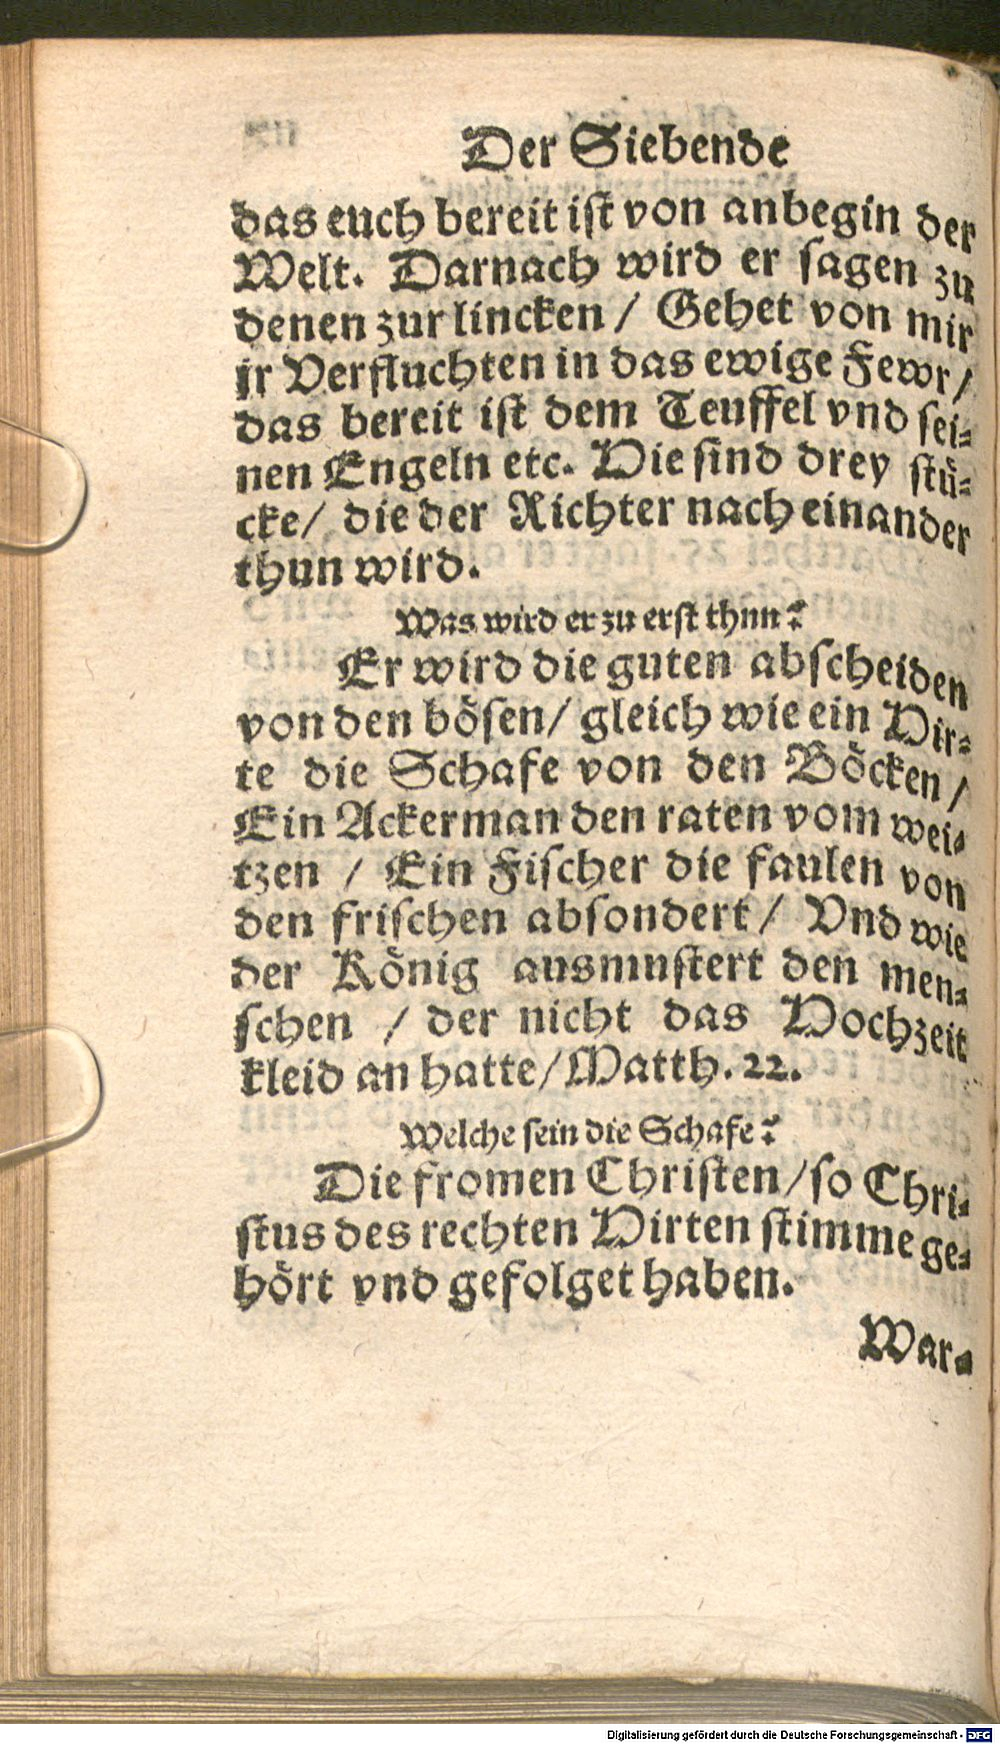 Der Siebende
das euch bereit ist von anbegin der
Welt. Darnach wird er sagen zu
denen zur lincken / Gehet von mir
jr Verfluchten in das ewige Fewr /
das bereit ist dem Teuffel vnd sei-
nen Engeln etc. Die sind drey stü-
cke / die der Richter nach einander
thun wird.
Was wird er zu erst thun?
Er wird die guten abscheiden
von den bösen / gleich wie ein Hir-
te die Schafe von den Böcken /
Ein Ackerman den raten vom wei-
tzen / Ein Fischer die faulen von
den frischen absondert / Vnd wie
der König ausmustert den men-
schen / der nicht das Hochzeit
kleid an hatte / Matth. 22.
Welche sein die Schafe?
Die fromen Christen / so Chri-
stus des rechten Hirten stimme ge-
hört vnd gefolget haben.
War-
Digitalisierung gefördert durch die Deutsche Forschungsgemeinschaft - DFG